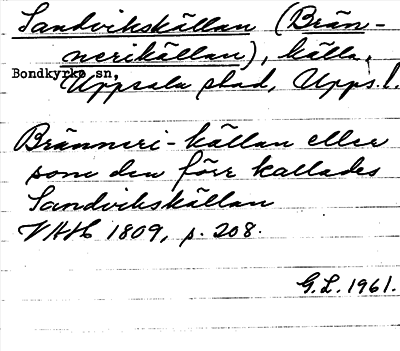 Sandvikskällan (Brän-
nerikällan), källa,
Bondkyrko sn,
Uppsala stad, Upps. l.
Bränneri-källan eller
som den förr kallades
Sandvikskällan
VHAH 1809, p. 208.
G.L. 1961.